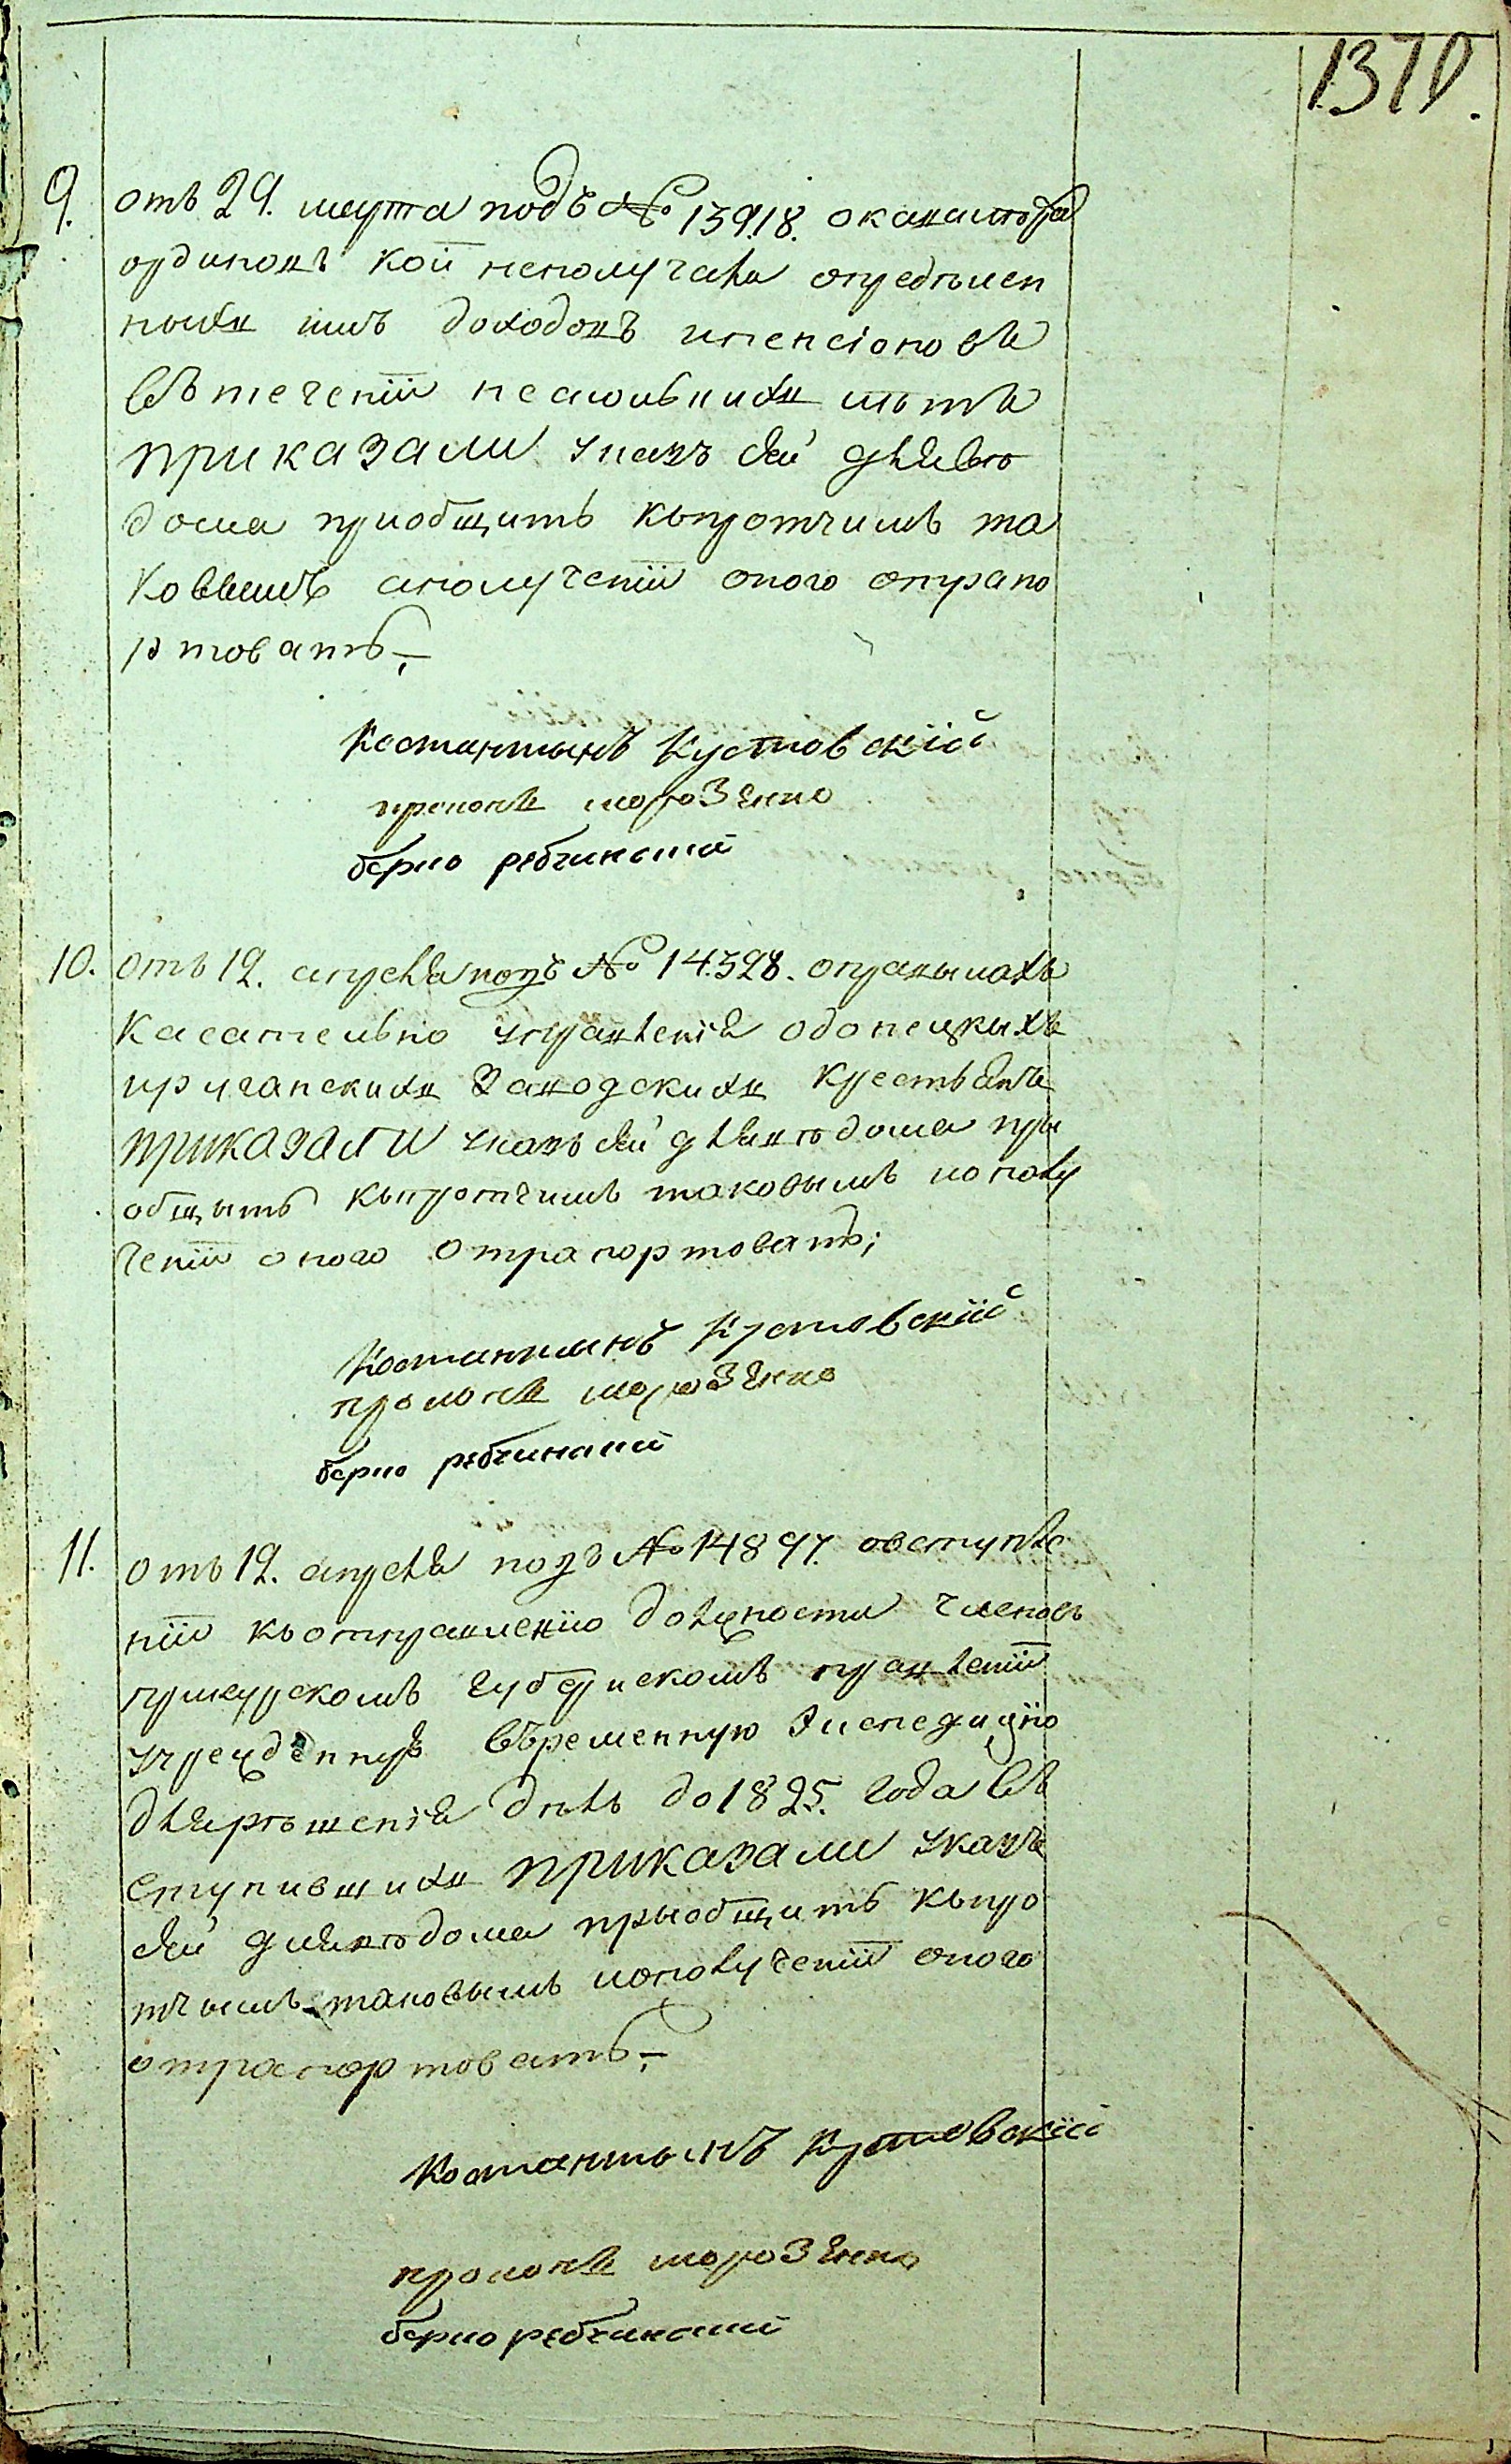 1370.
9. отъ 29. марта подъ № 13918. окавалера
ординовъ кои неполучали опредѣлен
ныхъ имъ доходовъ ипенсіоновъ
Въ теченіи несколькихъ лѣтъ
приказали указъ сей длявѣ
дома приобщить къпротчимъ та
ковымъ аполученіи оного отрапо
ртовать,
Костантынъ Кустовскій
морозенко
10. отъ 12. апреля подъ № 14.328. оправылахъ
касательно управленія олонецкихъ
илуганскихъ заводскихъ крестьянъ
приказали указъ сей длявѣдома при
общыть къпротчимъ таковымъ иополу
ченіи оного отрапортовать;
Костантынъ Кустовскій
морозенко
11. отъ 12. апреля подъ № 14897. овступле
ніи къотправленію должности членовъ
приКурскомъ Губернскомъ правленіи
учрежденную Въременную Экспедицію
дляреѣшенія дѣлъ до 1825. года Въ
ступившихъ приказали указъ
сей длявѣдома приобщить къпро
тчымъ таковымъ иополученіи оного
отрапортовать,
Костантынъ Кустовскій
морозенко